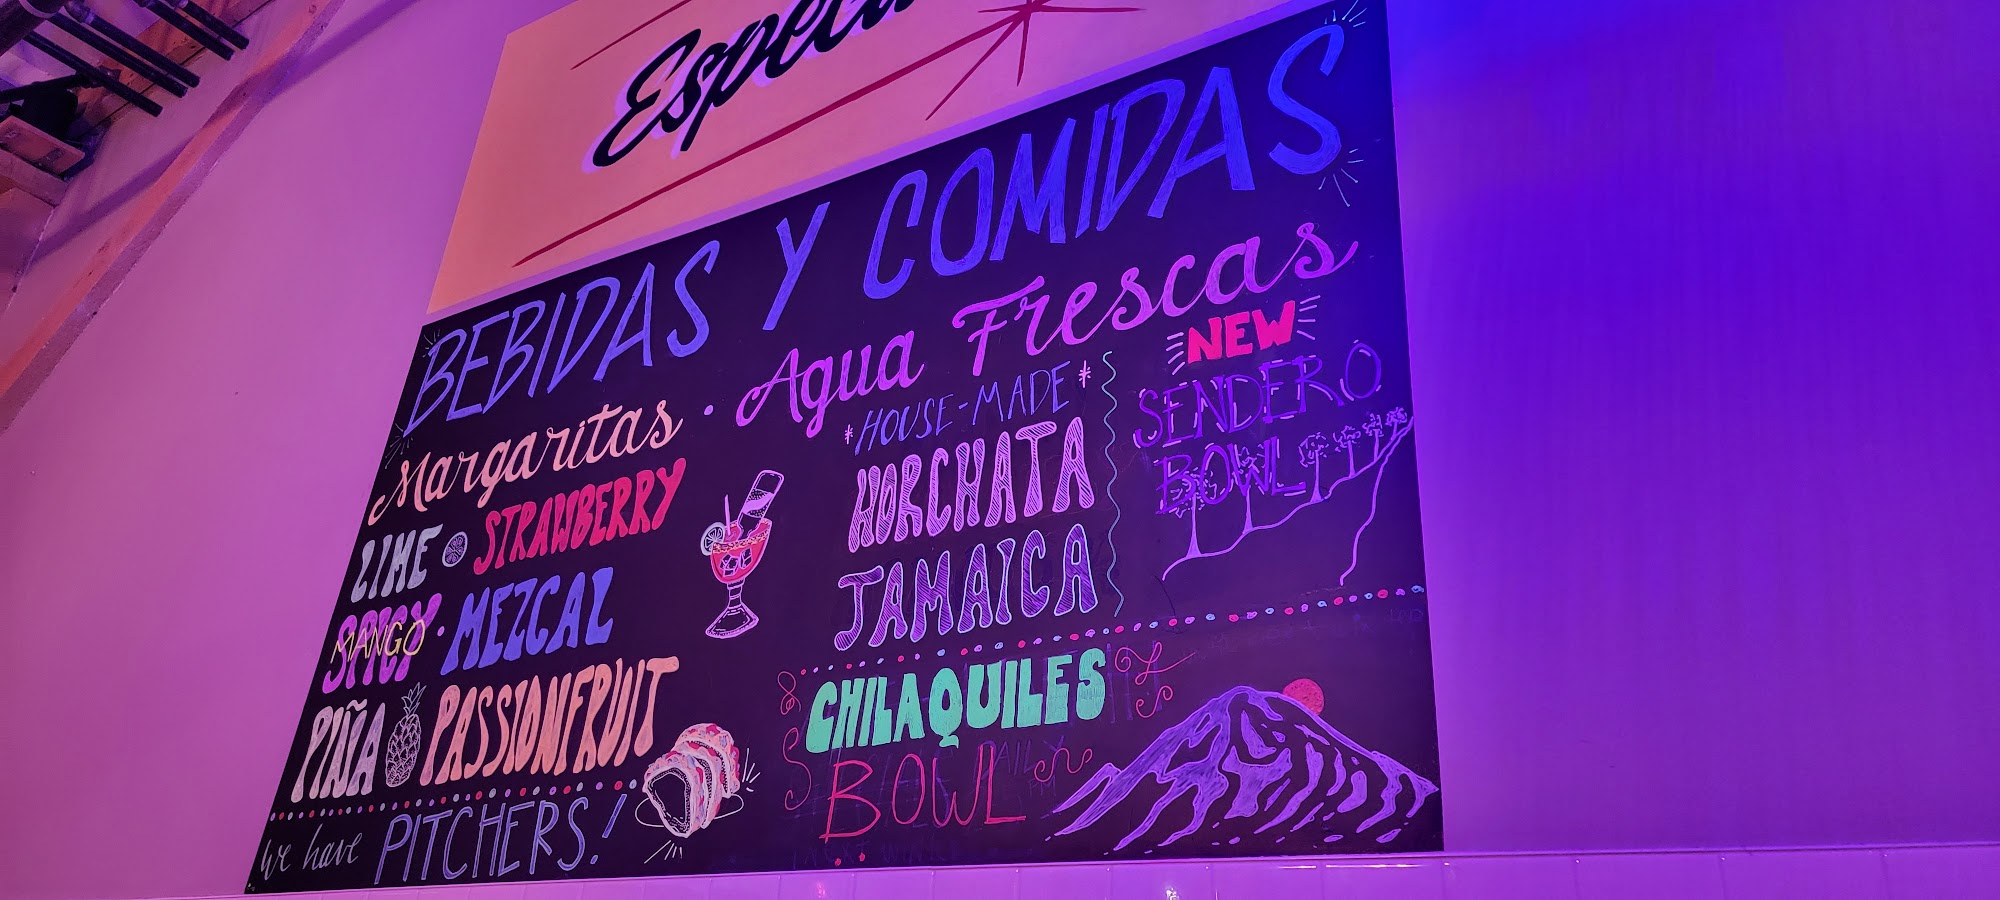 BEBIDAS Y COMIDAS
Margaritas · Agua Frescas
LIME STRAWBERRY
SPICY · MEZCAL
MANGO
PIÑA PASSIONFRUIT
we have PITCHERS!
*HOUSE-MADE*
HORCHATA
JAMAICA
NEW
SENDERO
BOWL
CHILAQUILES
BOWL